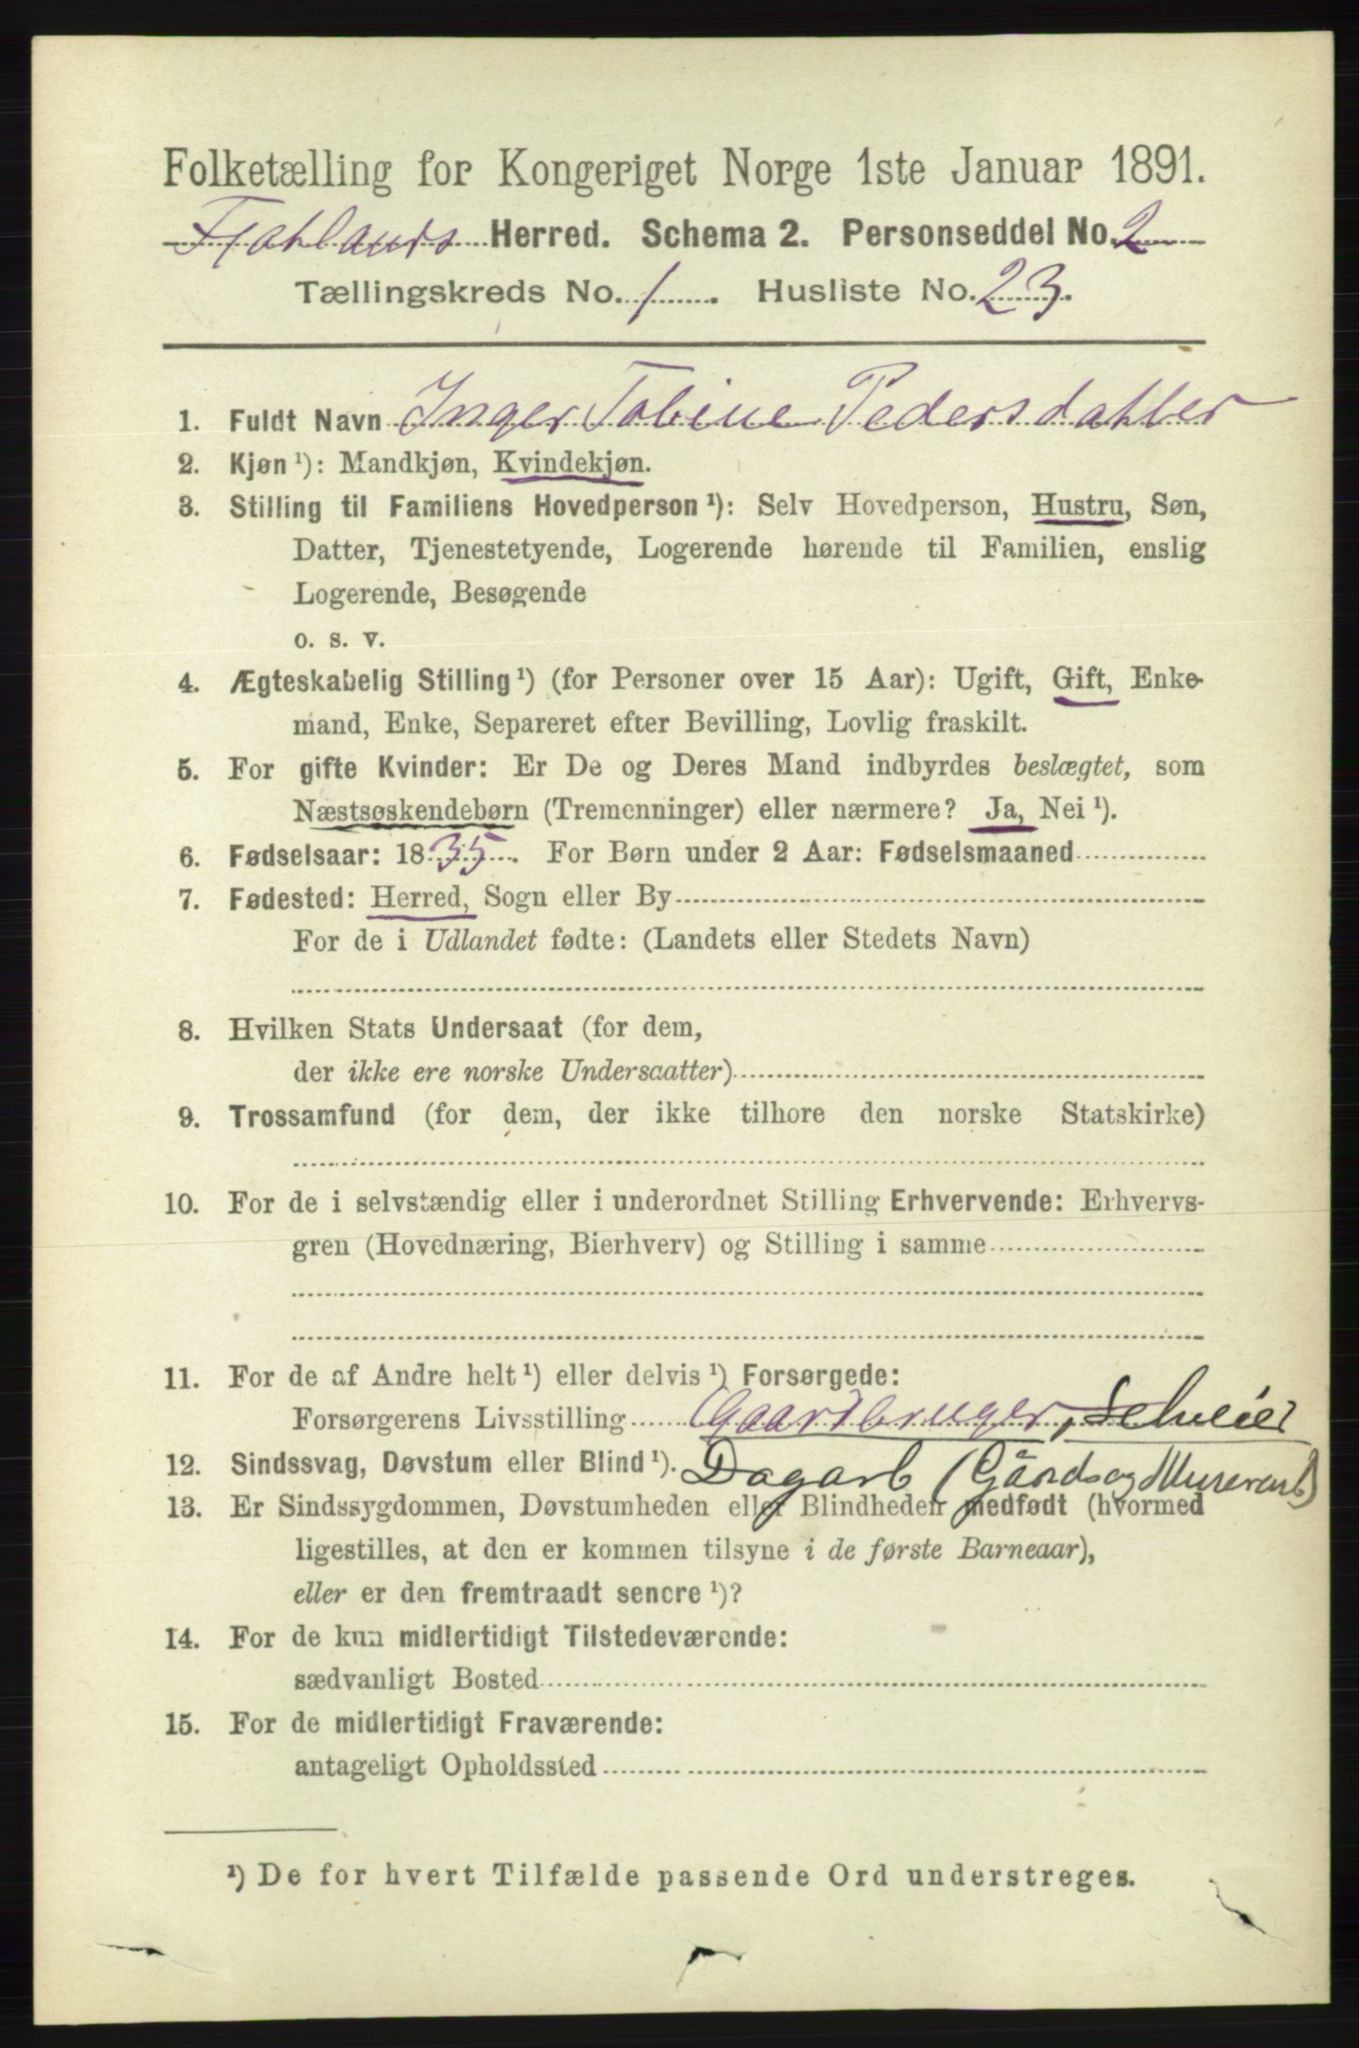 Folketælling for Kongeriget Norge 1ste Januar 1891.
Herred. Schema 2. Personseddel No. 2
Tællingskreds No. 1. Husliste No. 23.
1. Fuldt Navn Inger Tobine Pedersdatter
2. Kjøn ¹): Mandkjøn, Kvindekjøn.
3. Stilling til Familiens Hovedperson ¹): Selv Hovedperson, Hustru, Søn,
Datter, Tjenestetyende, Logerende hørende til Familien, enslig
Logerende, Besøgende
o. s. v.
4. Ægteskabelig Stilling ¹) (for Personer over 15 Aar): Ugift, Gift, Enke-
mand, Enke, Separeret efter Bevilling, Lovlig fraskilt.
5. For gifte Kvinder: Er De og Deres Mand indbyrdes beslægtet, som
Næstsøskendebørn (Tremenninger) eller nærmere? Ja, Nei ¹).
6. Fødselsaar: 1835. For Børn under 2 Aar: Fødselsmaaned
7. Fødested: Herred, Sogn eller By
For de i Udlandet fødte: (Landets eller Stedets Navn)
8. Hvilken Stats Undersaat (for dem,
der ikke ere norske Undersaatter)
9. Trossamfund (for dem, der ikke tilhore den norske Statskirke)
10. For de i selvstændig eller i underordnet Stilling Erhvervende: Erhvervs-
gren (Hovednæring, Bierhverv) og Stilling i samme
11. For de af Andre helt ¹) eller delvis ¹) Forsørgede:
Forsørgerens Livsstilling Gaardbruger, Selveier
12. Sindssvag, Døvstum eller Blind ¹). Dagarb (Gårds og Murerarb)
13. Er Sindssygdommen, Døvstumheden eller Blindheden medfødt (hvormed
ligestilles, at den er kommen tilsyne i de første Barneaar),
eller er den fremtraadt senere ¹)?
14. For de kun midlertidigt Tilstedeværende:
sædvanligt Bosted
15. For de midlertidigt Fraværende:
antageligt Opholdssted
¹) De for hvert Tilfælde passende Ord understreges.